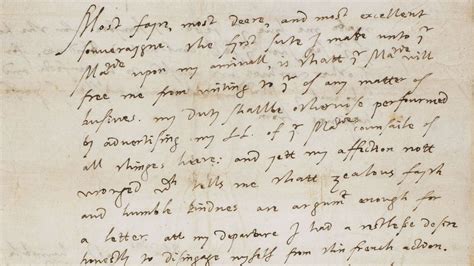 Most fayre, most deere, and most excellent
souveraigne. the first sute I make unto yr
Matie upon my arrivall, is thatt yr Matie will
free me from writing to yr of any matter of
busines. my duty shallbe otherwise perfourmed
by advertising my LL. of yr Maties counsaile of
all thinges heere: and yett my affection nott
wronged wch tells me thatt zealous fayth
and humble kindnes are argument enough for
a letter. att my departure I had a restlesse desire
honestly to disingage myself from this french action.